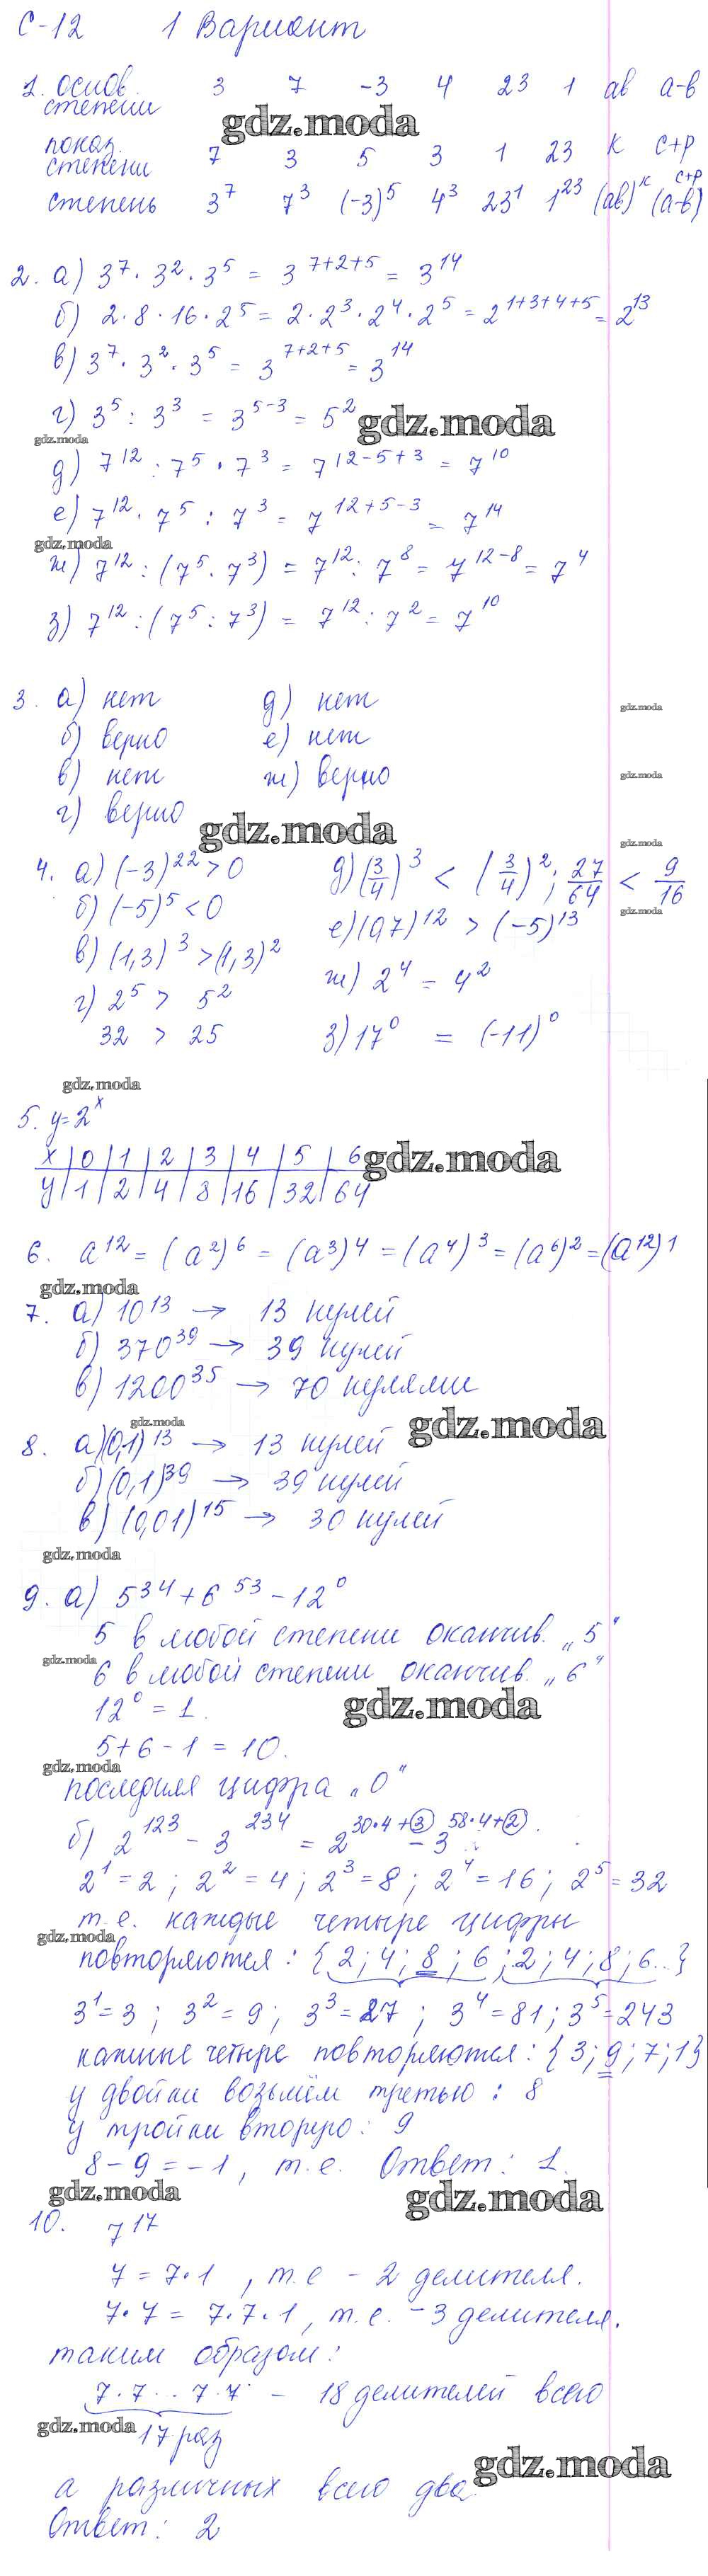 С-12 1 Вариант
1. основ. степени 3 7 -3 4 23 1 ав а-в
gdz.moda
показ. степени 7 3 5 3 1 23 к с+р
степень 3^7 7^3 (-3)^5 4^3 23^1 1^23 (ав)^к (а-в)^с+р
2. а) 3^7 · 3^2 · 3^5 = 3^7+2+5 = 3^14
б) 2·8·16·2^5 = 2·2^3·2^4·2^5 = 2^1+3+4+5 = 2^13
в) 3^7 · 3^2 · 3^5 = 3^7+2+5 = 3^14
г) 3^5 : 3^3 = 3^5-3 = 5^2 gdz.moda
gdz.moda
д) 7^12 : 7^5 · 7^3 = 7^12-5+3 = 7^10
е) 7^12 · 7^5 : 7^3 = 7^12+5-3 = 7^14
gdz.moda
ж) 7^12 : (7^5 · 7^3) = 7^12 : 7^8 = 7^12-8 = 7^4
з) 7^12 : (7^5 : 7^3) = 7^12 : 7^2 = 7^10
3. а) нет д) нет gdz.moda
б) верно е) нет
в) нет ж) верно gdz.moda
г) верно
gdz.moda gdz.moda
4. а) (-3)^22 > 0 д) (3/4)^3 < (3/4)^2; 27/64 < 9/16
б) (-5)^5 < 0 gdz.moda
в) (1,3)^3 > (1,3)^2 е) (0,7)^12 > (-5)^13
г) 2^5 > 5^2 ж) 2^4 = 4^2
32 > 25 з) 17^0 = (-11)^0
gdz.moda
5. у=2^х
х 0 1 2 3 4 5 6 gdz.moda
у 1 2 4 8 16 32 64
6. а^12 = (а^2)^6 = (а^3)^4 = (а^4)^3 = (а^6)^2 = (а^12)^1
gdz.moda
7. а) 10^13 → 13 нулей
б) 370^39 → 39 нулей
в) 1200^35 → 70 нулями
gdz.moda gdz.moda
8. а) (0,1)^13 → 13 нулей
б) (0,1)^39 → 39 нулей
в) (0,01)^15 → 30 нулей
gdz.moda
9. а) 5^34 + 6^53 - 12^0
5 в любой степени оканчив. „5"
gdz.moda
6 в любой степени оканчив. „6"
12^0 = 1. gdz.moda
5+6-1 = 10.
gdz.moda
последняя цифра „0"
б) 2^123 - 3^234 = 2^30·4+3 - 3^58·4+2.
2^1=2; 2^2=4; 2^3=8; 2^4=16; 2^5=32
т.е. каждые четыре цифры
gdz.moda
повторяются: {2;4;8;6;2;4;8;6..}
3^1=3; 3^2=9; 3^3=27; 3^4=81; 3^5=243
каждые четыре повторяются: {3;9;7;1}
у двойки возьмём третью: 8
у тройки вторую: 9
8-9=-1, т.е. Ответ: 1.
gdz.moda gdz.moda
10. 7^17
7 = 7·1, т.е - 2 делителя.
7·7 = 7·7·1, т.е. - 3 делителя.
таким образом:
7·7...7·7 - 18 делителей всего
gdz.moda 17 раз
gdz.moda
а различных всего два.
Ответ: 2